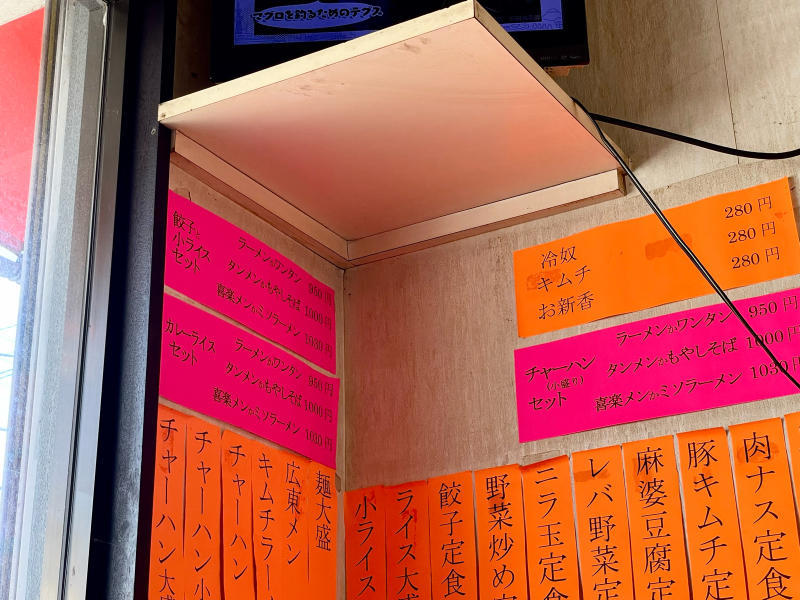 マグロを釣るためのテグス
餃子と
小ライス
セット
ラーメンかワンタン 950円
タンメンかもやしそば 1000円
喜楽メンかミソラーメン 1030円
カレーライス
セット
ラーメンかワンタン 950円
タンメンかもやしそば 1000円
喜楽メンかミソラーメン 1030円
冷奴 280円
キムチ 280円
お新香 280円
チャーハン
(小盛り)
セット
ラーメンかワンタン 950円
タンメンかもやしそば 1000円
喜楽メンかミソラーメン 1030円
肉ナス定食
豚キムチ定
麻婆豆腐定
レバ野菜定
ニラ玉定食
野菜炒め定
餃子定食
ライス大
小ライス
麺大盛
広東メン
キムチラー
チャーハン
チャーハン小
チャーハン大盛